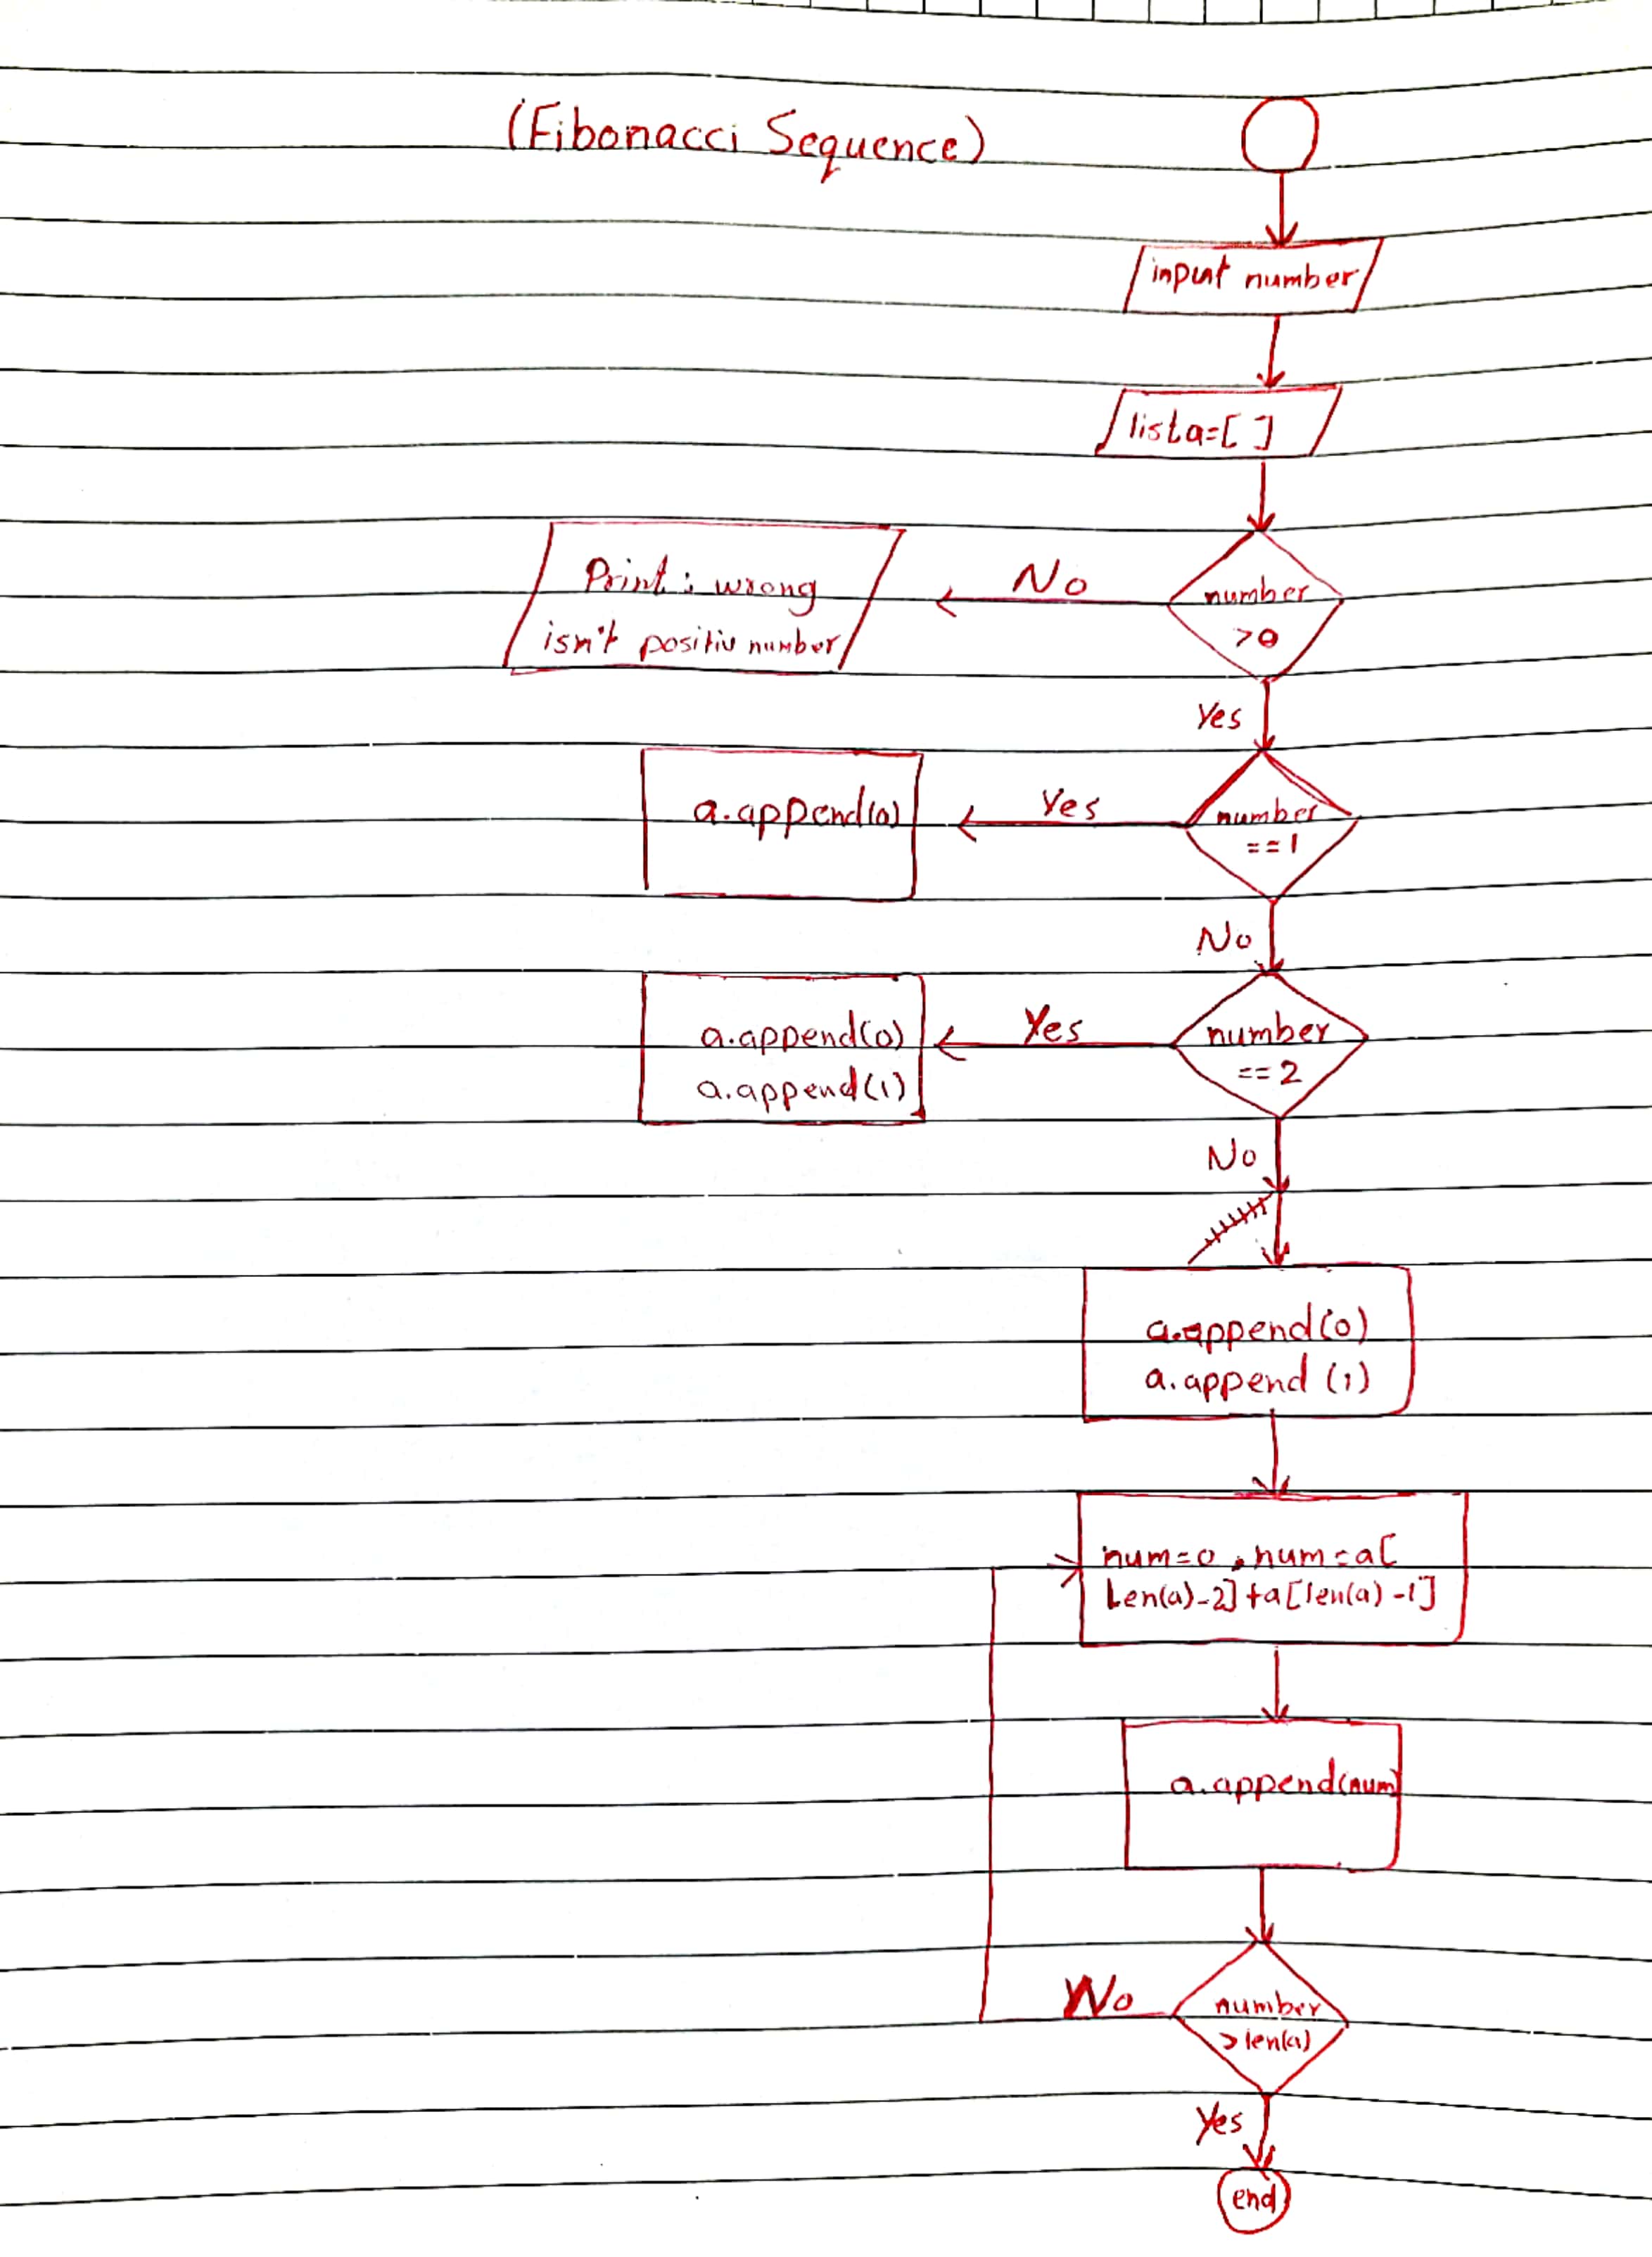 (Fibonacci Sequence)
input number
list a=[ ]
number
>0
No
Print: wrong
isn't positiv number
Yes
number
==1
Yes
a.append(0)
No
number
==2
Yes
a.append(0)
a.append(1)
No
a.append(0)
a.append (1)
num=0, num=a[
Len(a)-2]+a[len(a)-1]
a.append(num)
number
>len(a)
No
Yes
end